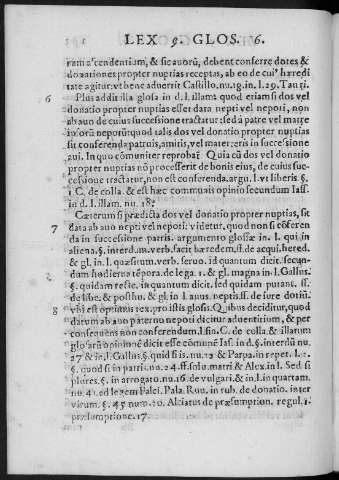 LEX 9. GLOS. 6.
ram ascendentium, & sic auorũ, debent conferre dotes &
donationes propter nuptias receptas, ab eo de cuius hæredi
tate agitur: vt bene aduertit Castillo. nu. 18. in l. 29. Tauri.
6 Plus addit illa glosa in d. l. illam. quod etiam si dos vel
donatio propter nuptias esset data nepti vel nepoti, non
ab auo de cuius successione tractatur: sed à patre vel matre
ipsorũ nepotũ: quod talis dos vel donatio propter nuptias
sit conferenda patruis, amitis, vel materteris in successione
aui. In quo cõmuniter reprobať. Quia cũ dos vel donatio
propter nuptias nõ processerit de bonis eius, de cuius suc-
cessione tractatur, non est conferenda. argu. l. vt liberis §.
1. C. de colla. & est hæc communis opinio secundum Iass.
in d. l. illam. nu. 18.
7 Cæterum si prædicta dos vel donatio propter nuptias, sit
data ab auo nepti vel nepoti: videtur, quod non si cõferen
da in successione patris. argumento glossæ in. l. qui in
aliena. §. interdum. verb. facit hæredem. ff. de acqui. hered.
& gl. in l. quæsitum. verb. seruo. id quantum dicit. secun-
dum hodierna tẽpora. de lega. 1. & gl. magna in l. Gallus.
§. quidam recte. in quantum dicit. sed quidam putant. ff.
de libe. & posthu. & gl. in l. auus. neptis. ff. de iure dotiũ.
8 vbi est optimus tex. pro istis glosis. Quibus deciditur, quod
datum ab auo paterno nepoti dicitur aduentitium, & per
consequens non conferendum. l. fin. C. de colla. & illarum
glosarũ opinionẽ dicit esse cõmunẽ Ias. in d. §. interdũ nu.
27 & in l. Gallus. §. quid si is. nu. 12 & Parpa. in repet. l. 1.
§. quod si in patri. nu. 24. ff. solu. matri & Alex. in l. Sed si
plures. §. in arrogato. nu. 16. de vulgari. & in l. in quartam.
nu. 41. ad legem Falci. Pala. Ruu. in rub. de donatio. inter
virum. §. 45 num. 10. Alciatus de præsumption. regul. 1.
præsumptione. 17.